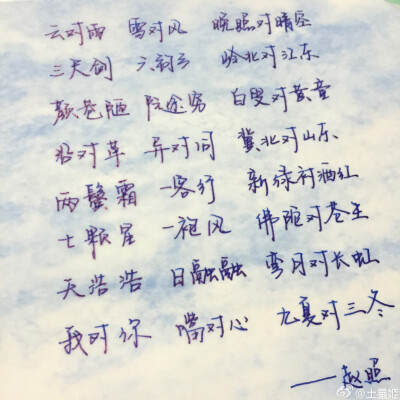 云对雨 雪对风 晚照对晴空
三尺剑 六钧弓 岭北对江东
颜巷陋 阮途穷 白叟对黄童
沿对革 异对同 冀北对山东
两鬓霜 一客行 新绿衬酒红
七颗星 一袍风 佛陀对苍生
天浩浩 日融融 弯月对长虹
我对你 嘴对心 九夏对三冬
——赵照
@土童姬